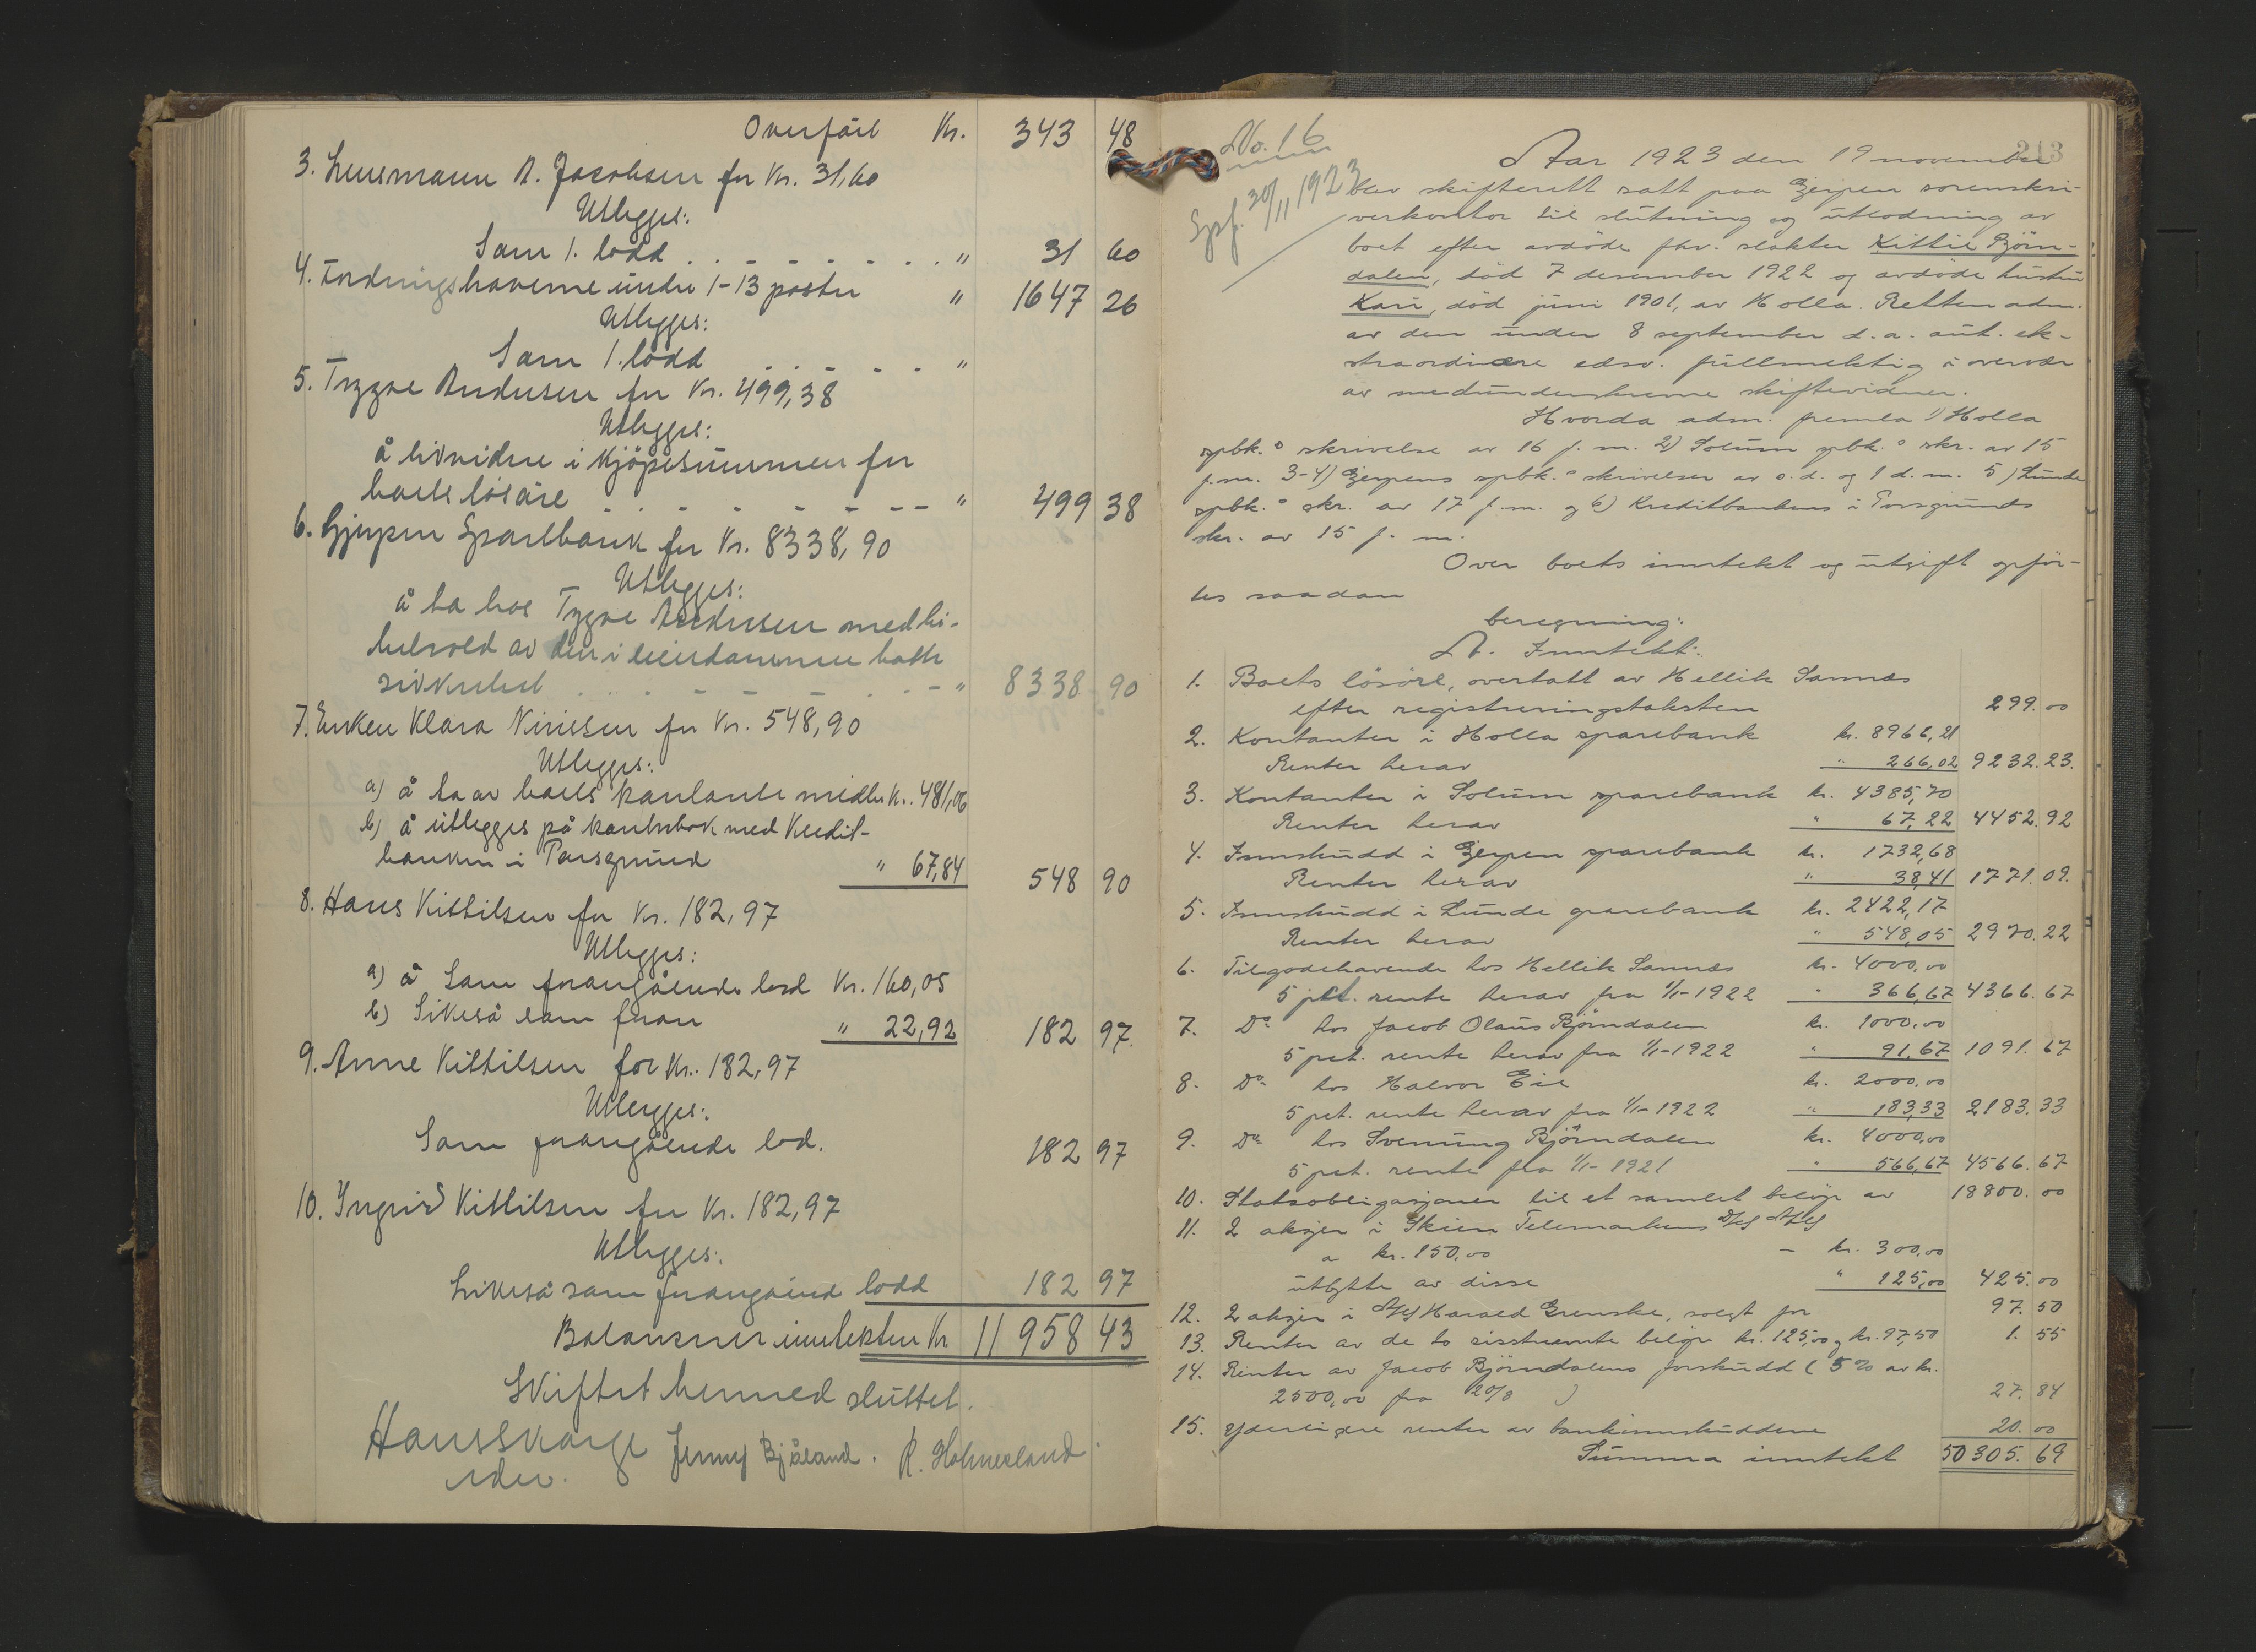 Overført Kr. 343 48
3. Lensmann A. Jacobsen for Kr. 31,60
Utlegges:
Som 1. lodd . . . " 31 60
4. Fordringshaverne under 1-13 poster " 1647 26
Utlegges:
Som 1. lodd . . . "
5. Trygve Andersen for Kr. 499,38
Utlegges:
å likvidere i kjöpesummen for
boets lösöre . . . " 499 38
6. Gjerpen Sparebank for Kr. 8338,90
Utlegges:
å ta hos Trygve Andersen med bi-
behold av den i eiendommen hatte
sikkerhet . . . " 8338 90
7. Enken Klara Nirisen for Kr. 548,90
Utlegges:
a) å ta av boets kontante midler Kr. 481,06
b) å utlegges på kontrabok med Kredit-
banken i Porsgrund " 67,84 548 90
8. Hans Kittilsen for Kr. 182,97
Utlegges:
a) å Som forangående lodd Kr. 160,05
b) Likeså som foran " 22,92 182 97
9. Anne Kittilsen for Kr. 182,97
Utlegges:
Som forangående lod. 182 97
10. Yngvid Kittilsen for Kr. 182,97
Utlegges:
Likeså som forangående lodd 182 97
Balanserer inntekten Kr. 11958 43
Skiftet hermed sluttet.
Jenny Bjåland. R. Holmesland
edsv.
213
No. 16
30/11 1923
Aar 1923 den 19 november
blev skifterett satt paa Gjerpen sorenskri-
verkontor til slutning og utlodning av
boet efter avdöde fhv. slakter Kittil Björn-
dalen, död 7 desember 1922 og avdöde hustru
Kari, död juni 1901, av Holla. Retten adm.
av den under 8 september d.a. aut. ek-
straordinære edsv. fullmektig i overvær
av medunderskrevne skiftevidner.
Hvorda adm. fremla 1) Holla
spbk.s skrivelse av 16 f. m. 2) Solum spbk.s skr. av 15
f.m. 3-4) Gjerpens spbk.s skrivelser av s.d. og 1 d.m. 5) Lunde
spbk.s skr. av 17 f.m. og 6) Kreditbankens i Porsgrunds
skr. av 15 f. m.
Over boets inntekt og utgift opför-
tes saadan
beregning:
A. Inntekt:
1. Boets lösöre, overtatt av Hellik Sannes
efter registreringstaksten 299.00
2. Kontanter i Holla sparebank kr. 8966,21
Renter herav " 266,02 9232.23.
3. Kontanter i Solum sparebank kr. 4385,70
Renter herav " 67,22 4452.92
4. Innskudd i Gjerpen sparebank kr. 1732,68
Renter herav " 38,41 1771.09.
5. Innskudd i Lunde sparebank kr. 2422,17
Renter herav " 548,05 2970.22
6. Tilgodehavende hos Hellik Sannes kr. 4000,00
5 pct. rente herav fra 1/1-1922 " 366,67 4366.67
7. Do hos Jacob Olaus Björndalen kr. 1000,00
5 pct. rente herav fra 1/1-1922 " 91,67 1091.67
8. Do hos Halvor Eie kr. 2000,00
5 pct. rente herav fra 1/1-1922 " 183,33 2183.33
9. Do hos Svenung Björndalen kr. 4000,00
5 pct. rente fra 1/1-1921 " 566,67 4566.67
10. Statsobligasjoner til et samlet belöp av 18800.00
11. 2 aksjer i Skien Telemarkens D/S A/S
a kr. 150,00 - kr. 300,00
utbytte av disse " 125,00 425.00
12. 2 aksjer i A/S Harald Grenske, solgt for 97.50
13. Renter av de to sisstnevnte belöp kr. 125,00 og kr. 97,50 1.55
14. Renter av Jacob Björndalens forskudd (5% av kr.
2500,00 fra 20/8 ) 27.84
15. Yderligere renter av bankinnskuddene 20.00
Summa inntekt 50305.69